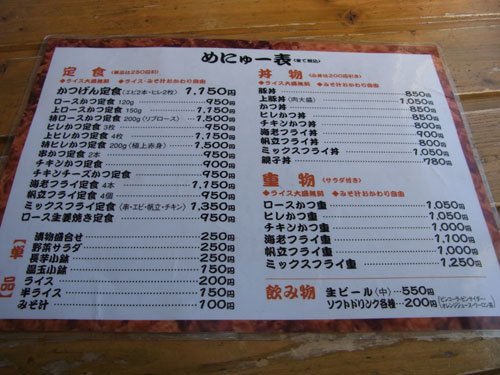 めにゅー表(全て税込)
定食(単品は250円引)
◆ライス大盛無料 ◆ライス・みそ汁おかわり自由
かつげん定食(エビ2本・ヒレ2枚) 1,150円
ロースかつ定食 120g 950円
上ロースかつ定食 150g 1,150円
特ロースかつ定食 200g(リブロース) 1,500円
ヒレかつ定食 3枚 950円
上ヒレかつ定食 4枚 1,150円
特ヒレかつ定食 200g(極上赤身) 1,500円
串かつ定食 2本 950円
チキンかつ定食 950円
チキンチーズかつ定食 950円
海老フライ定食 4本 1,150円
帆立フライ定食 4個 950円
ミックスフライ定食(串・エビ・帆立・チキン) 1,350円
ロース生姜焼き定食 950円
【単品】
漬物盛合せ 150円
野菜サラダ 250円
長芋小鉢 150円
温玉小鉢 150円
ライス 200円
半ライス 150円
みそ汁 100円
丼物
◆ライス大盛無料 ◆みそ汁おかわり自由
豚丼 850円
上豚丼(肉大盛) 1,050円
かつ丼 850円
ヒレかつ丼 850円
チキンかつ丼 800円
海老フライ丼 900円
帆立フライ丼 800円
ミックスフライ丼 1,050円
親子丼 780円
重物(サラダ付き)
◆ライス大盛無料 ◆みそ汁おかわり自由
ロースかつ重 1,050円
ヒレかつ重 1,050円
チキンかつ重 1,000円
海老フライ重 1,100円
帆立フライ重 1,000円
ミックスフライ重 1,250円
飲み物 生ビール(中) 550円
ソフトドリンク各種 200円